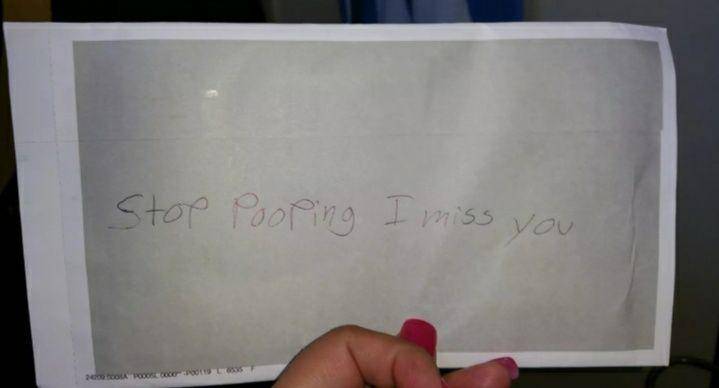 Stop Pooping I miss you
24209.0008A P000SL 0000 -P00119 L 6535 F